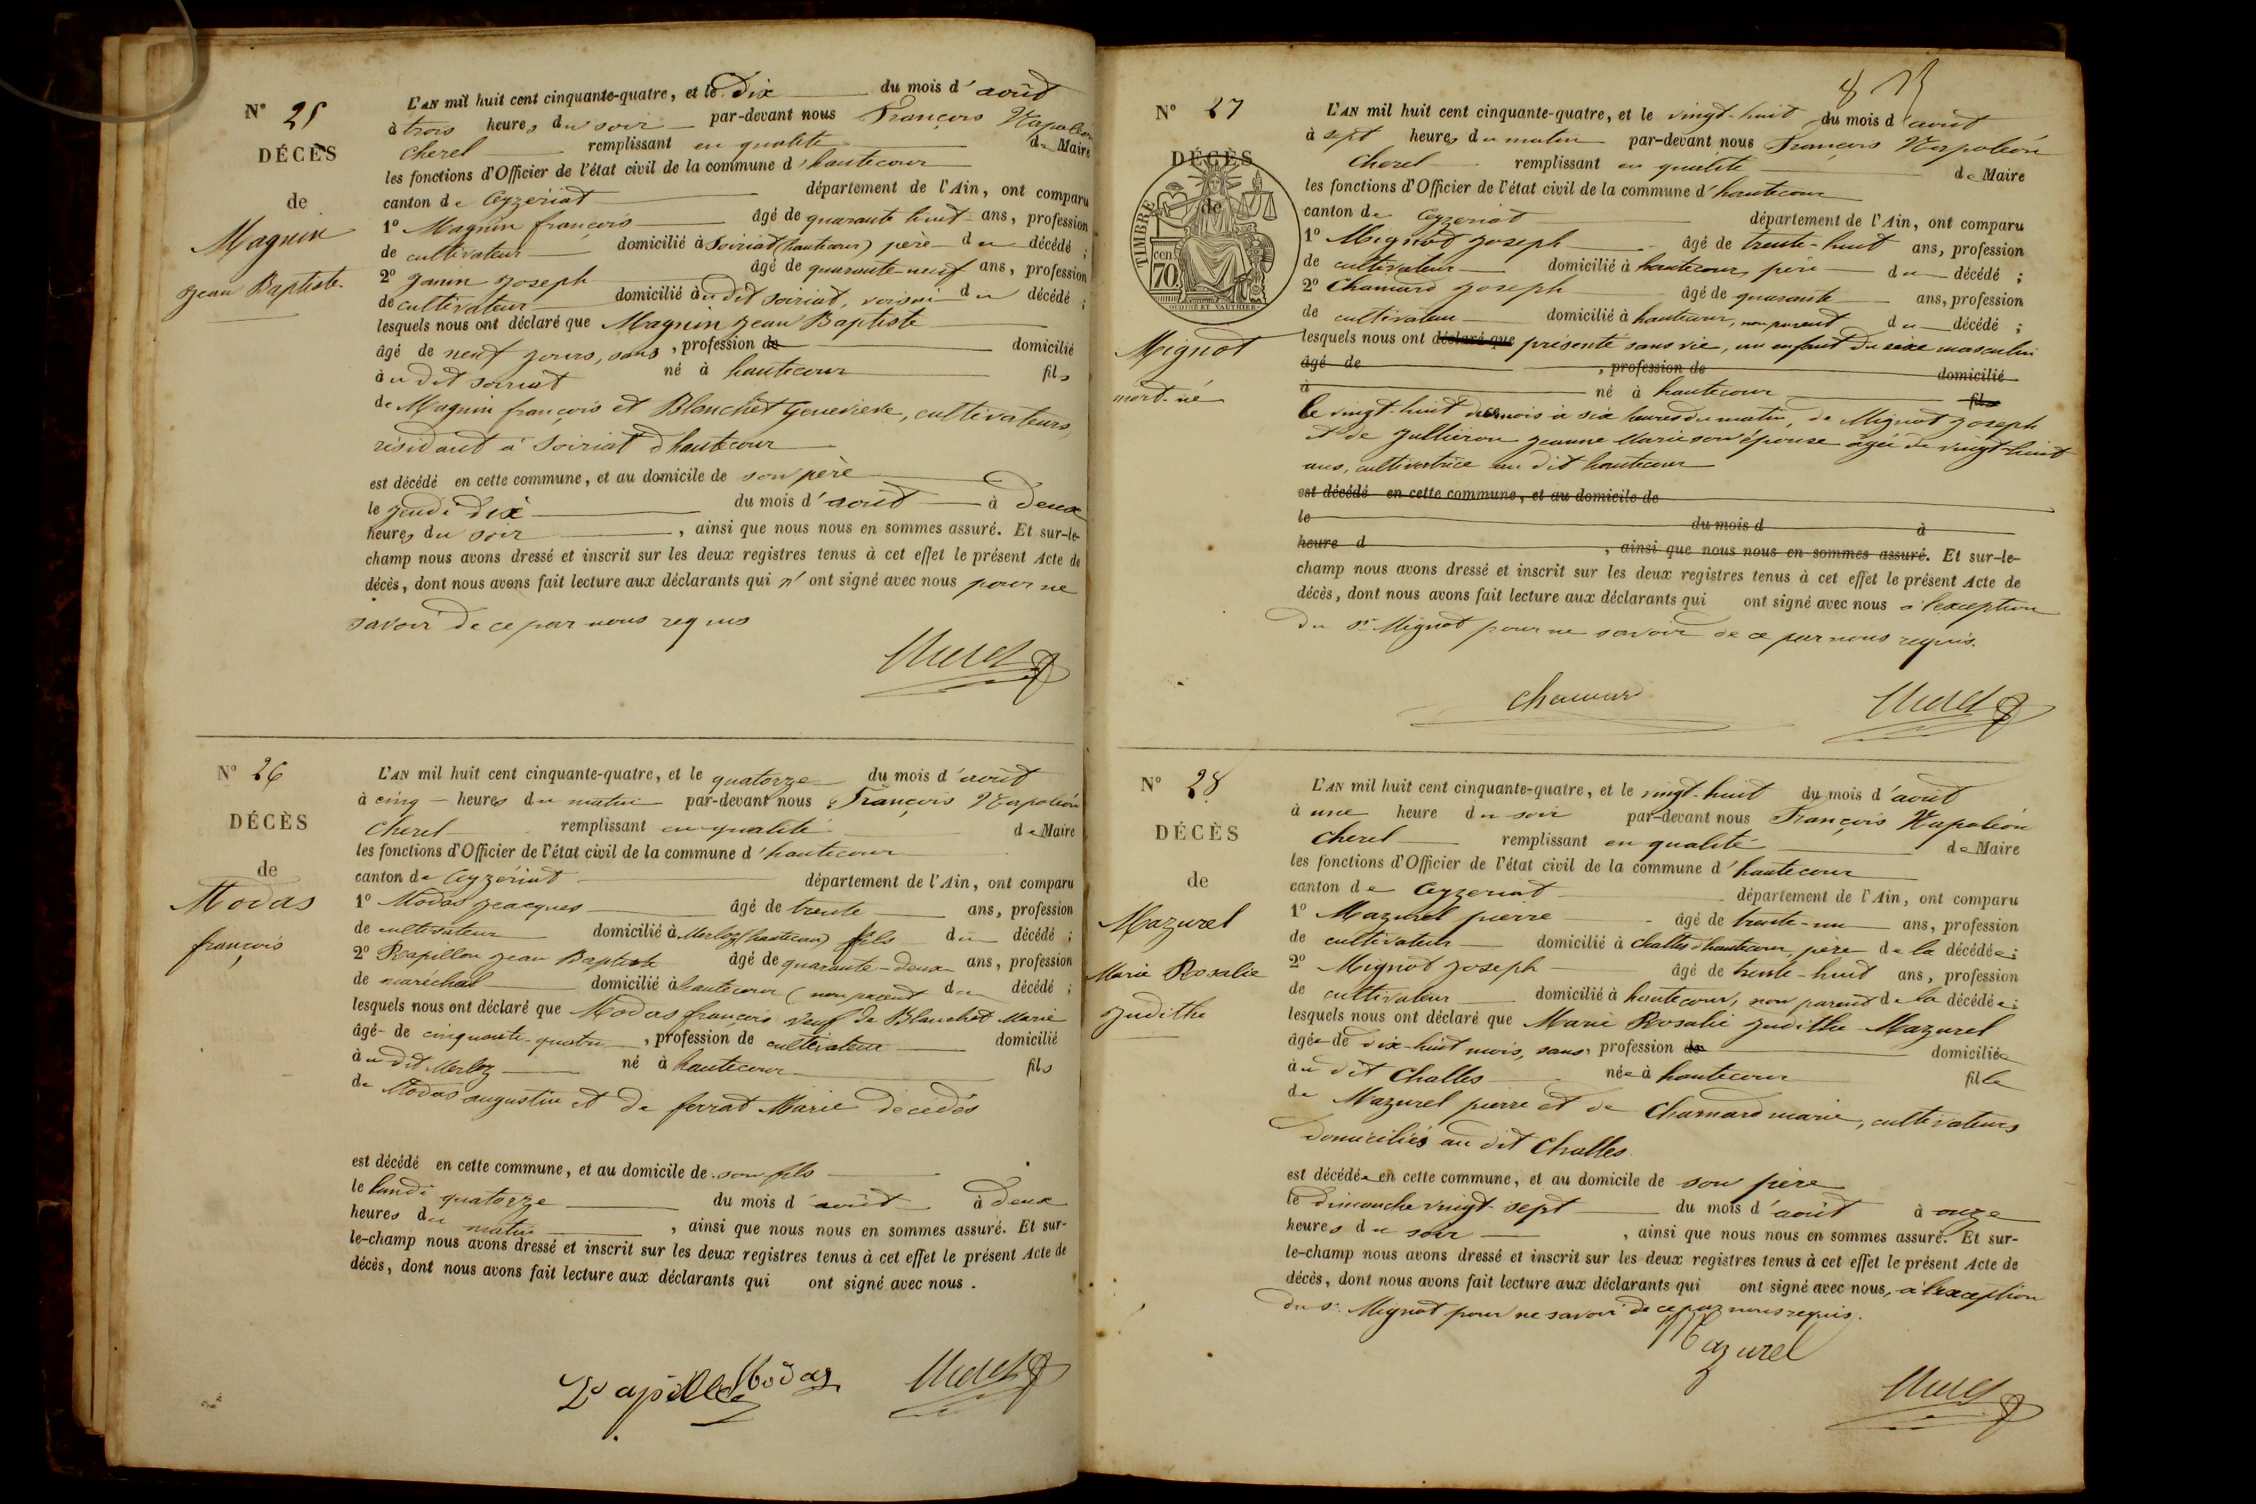 N° 25
DÉCÈS
de
Magnin
Jean Baptiste
L'AN mil huit cent cinquante-quatre, et le Dix du mois d'août
à trois heures du soir par-devant nous François Napoléon
Cherel remplissant en qualité de Maire
les fonctions d'Officier de l'état civil de la commune d'hautecour
canton de Ceyzériat département de l'Ain, ont comparu
1° Magnin françois âgé de quarante huit ans, profession
de cultivateur domicilié à Soiriat (hautecour) père du décédé ;
2° Janin Joseph âgé de quarante-neuf ans, profession
de cultivateur domicilié au dit Soiriat, voisin du décédé ;
lesquels nous ont déclaré que Magnin Jean Baptiste
âgé de neuf jours, sans , profession de domicilié
au dit Soiriat né à hautecour fils
de Magnin françois et Blanchet Genevieve, cultivateurs,
résidant à Soiriat d'hautecour
est décédé en cette commune, et au domicile de son père
le jeudi dix du mois d'août à Deux
heures du soir , ainsi que nous nous en sommes assuré. Et sur-le-
champ nous avons dressé et inscrit sur les deux registres tenus à cet effet le présent Acte de
décès, dont nous avons fait lecture aux déclarants qui n'ont signé avec nous pour ne
savoir de ce par nous requis
Cherel
N° 26
DÉCÈS
de
Modas
françois
L'AN mil huit cent cinquante-quatre, et le quatorze du mois d'août
à cinq heures du matin par-devant nous François Napoléon
Cherel remplissant en qualité de Maire
les fonctions d'Officier de l'état civil de la commune d'hautecour
canton de Ceyzériat département de l'Ain, ont comparu
1° Modas Jeacques âgé de trente ans, profession
de cultivateur domicilié à Merloz (hautecour) fils du décédé ;
2° Rapillon Jean Baptiste âgé de quarante-deux ans, profession
de maréchal domicilié à hautecour (non parent du décédé ;
lesquels nous ont déclaré que Modas françois veuf de Blanchet Marie
âgé de cinquante-quatre , profession de cultivateur domicilié
au dit Merloz né à hautecour fils
de Modas augustin et de ferrat Marie décédés
est décédé en cette commune, et au domicile de son fils
le lundi quatorze du mois d'août à deux
heures du matin , ainsi que nous nous en sommes assuré. Et sur-
le-champ nous avons dressé et inscrit sur les deux registres tenus à cet effet le présent Acte de
décès, dont nous avons fait lecture aux déclarants qui ont signé avec nous .
Modas Cherel
8
N° 27
DÉCÈS
de
TIMBRE
70
Mignot
mort-né
L'AN mil huit cent cinquante-quatre, et le vingt-huit du mois d'août
à sept heures du matin par-devant nous François Napoléon
Cherel remplissant en qualité de Maire
les fonctions d'Officier de l'état civil de la commune d'hautecour
canton de Ceyzeriat département de l'Ain, ont comparu
1° Mignot Joseph âgé de trente-huit ans, profession
de cultivateur domicilié à hautecour, père du décédé ;
2° Chamard Joseph âgé de quarante ans, profession
de cultivateur domicilié à hautecour, non parent du décédé ;
lesquels nous ont déclaré que présenté sans vie, un enfant du sexe masculin
âgé de , profession de domicilié
à né à hautecour fils
le vingt-huit du mois à six heures du matin, de Mignot Joseph
et de Jullieron Jeanne Marie son épouse âgée de vingt-huit
ans, cultivatrice au dit hautecour
est décédé en cette commune, et au domicile de
le du mois d à
heure d , ainsi que nous nous en sommes assuré. Et sur-le-
champ nous avons dressé et inscrit sur les deux registres tenus à cet effet le présent Acte de
décès, dont nous avons fait lecture aux déclarants qui ont signé avec nous à l'exception
du Sr Mignot pour ne savoir de ce par nous requis.
Chamard Cherel
N° 28
DÉCÈS
de
Mazurel
Marie Rosalie
Judithe
L'AN mil huit cent cinquante-quatre, et le vingt-huit du mois d'août
à une heure du soir par-devant nous François Napoléon
Cherel remplissant en qualité de Maire
les fonctions d'Officier de l'état civil de la commune d'hautecour
canton de Ceyzeriat département de l'Ain, ont comparu
1° Mazurel pierre âgé de trente-un ans, profession
de cultivateur domicilié à Challes d'hautecour, père de la décédée ;
2° Mignot Joseph âgé de trente-huit ans, profession
de cultivateur domicilié à hautecour, non parent de la décédée ;
lesquels nous ont déclaré que Marie Rosalie Judithe Mazurel
âgée de dix-huit mois, sans profession de domiciliée
au dit Challes née à hautecour fille
de Mazurel pierre et de Chamard marie, cultivateurs
domiciliés au dit Challes.
est décédée en cette commune, et au domicile de son père
le dimanche vingt-sept du mois d'août à onze
heures du soir , ainsi que nous nous en sommes assuré. Et sur-
le-champ nous avons dressé et inscrit sur les deux registres tenus à cet effet le présent Acte de
décès, dont nous avons fait lecture aux déclarants qui ont signé avec nous, à l'exception
du Sr Mignot pour ne savoir de ce par nous requis.
Mazurel
Cherel